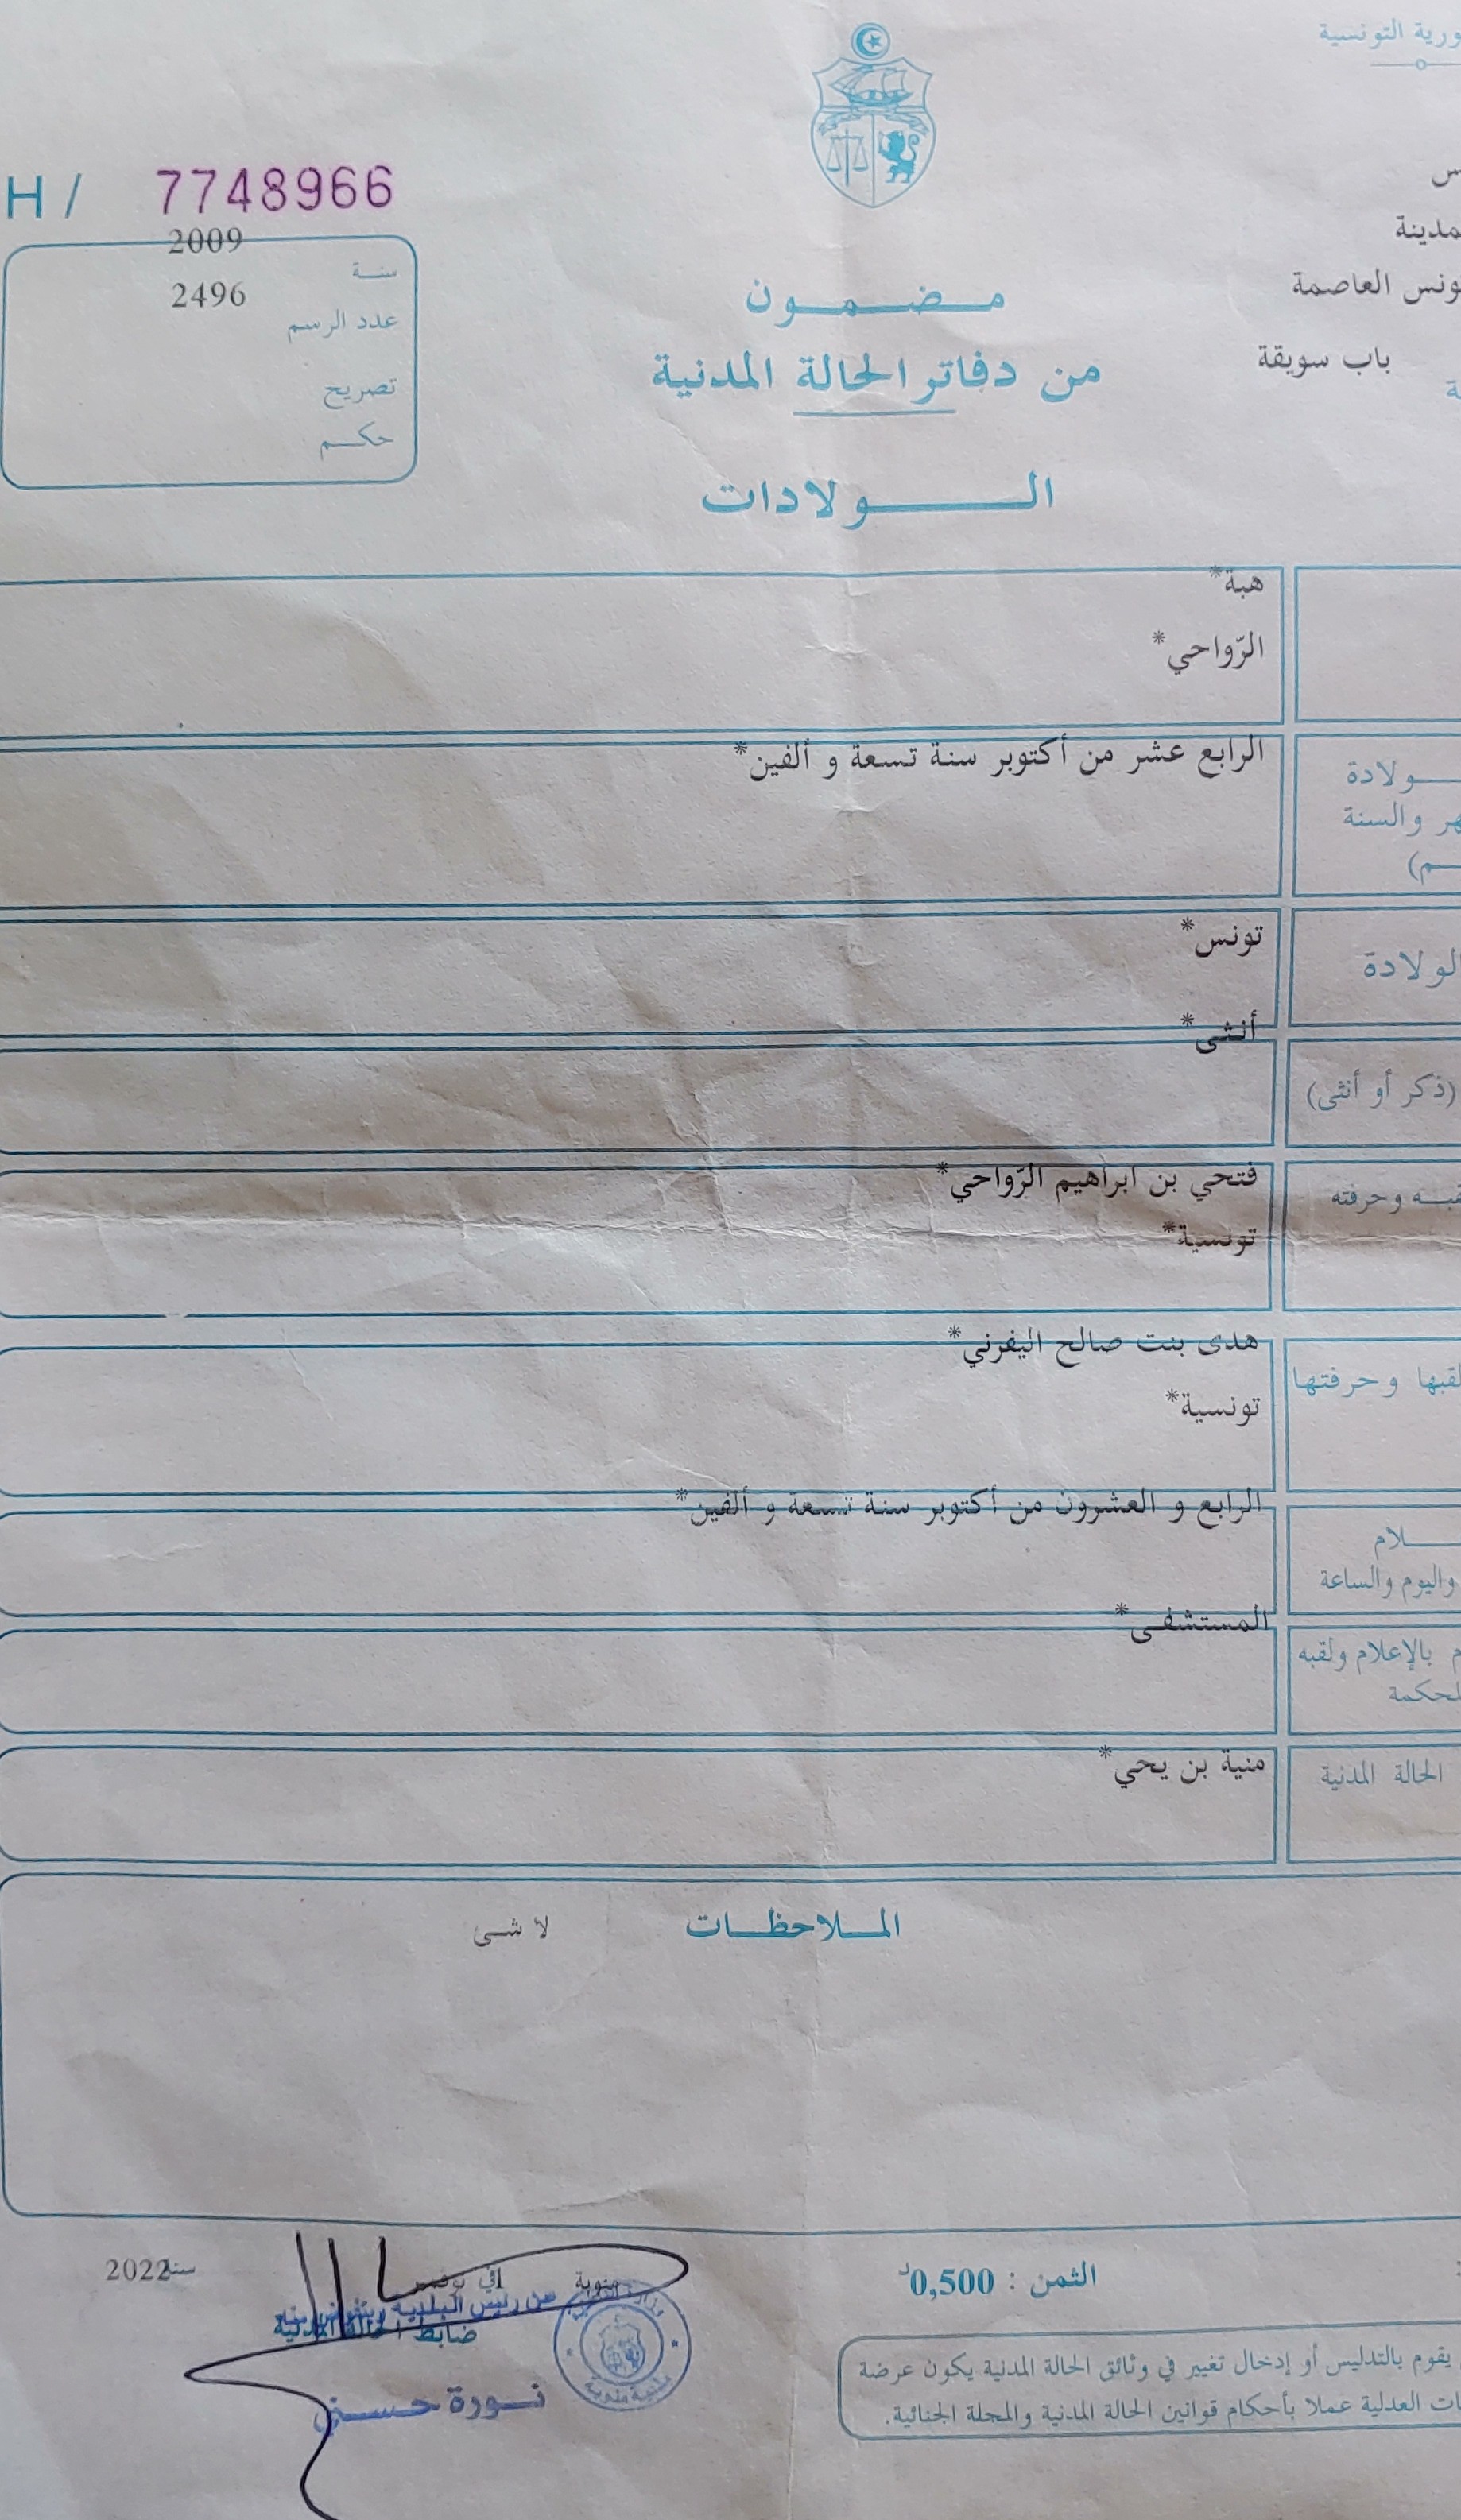 التونسية
H / 7748966
العاصمة
باب سويقة
2009
سنة
2496
عدد الرسم
تصريح
حكم
مضمون
من دفاتر الحالة المدنية
الولادات
هبة*
الرّواحي*
الرابع عشر من أكتوبر سنة تسعة و ألفين*
والسنة
تونس*
أنثى*
(ذكر أو أنثى)
فتحي بن ابراهيم الرّواحي*
وحرفته
تونسية*
هدى بنت صالح اليفرني*
وحرفتها
تونسية*
الرابع و العشرون من أكتوبر سنة تسعة و ألفين*
واليوم والساعة
المستشفى*
بالإعلام ولقبه
منية بن يحي*
الحالة المدنية
الملاحظات
لا شئ
منوبة
سنة 2022
عن رئيس البلدية
ضابط الحالة المدنية
نورة
الثمن : 0,500د
يقوم بالتدليس أو إدخال تغيير في وثائق الحالة المدنية يكون عرضة
العدلية عملا بأحكام قوانين الحالة المدنية والمجلة الجنائية.